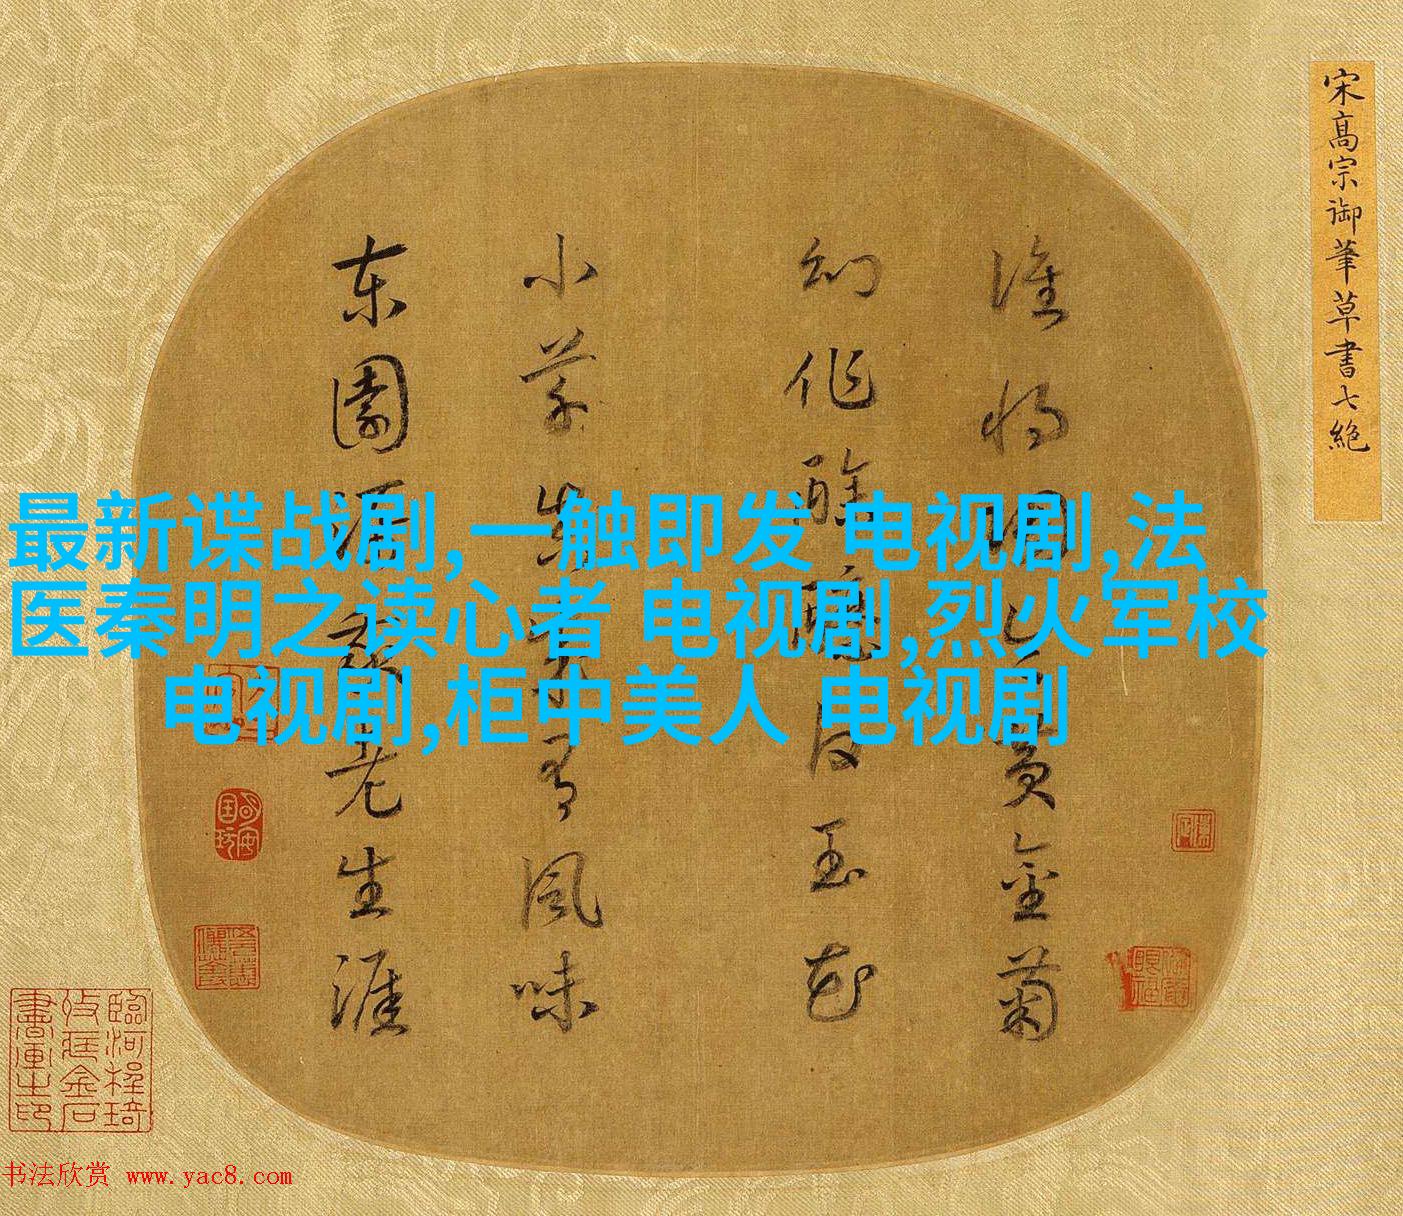 宋髙宗御筆草書七絶
誰将黃金菊
幻作酴醿白玉花
小草有風味
東園老生涯
最新谍战剧,一触即发 电视剧,法
医秦明之读心者 电视剧,烈火军校
电视剧,柜中美人 电视剧
书法欣赏 www.yac8.com